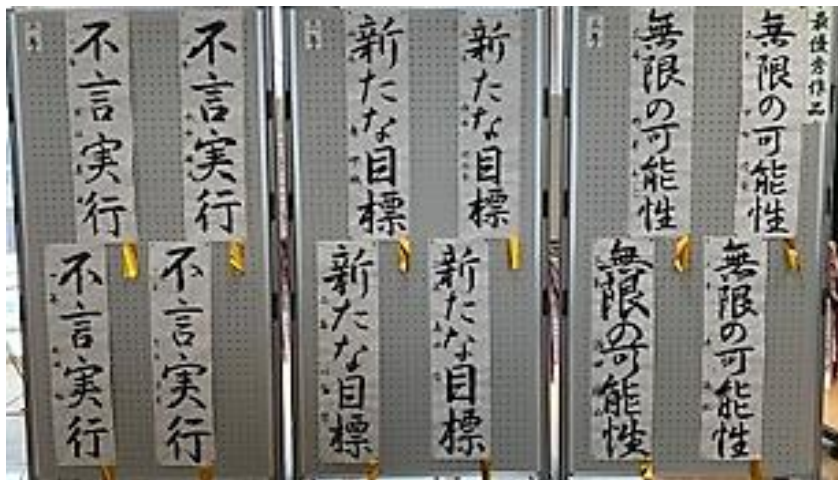 最優秀作品
無限の可能性
無限の可能性
無限の可能性
無限の可能性
新たな目標
新たな目標
新たな目標
新たな目標
不言実行
不言実行
不言実行
不言実行